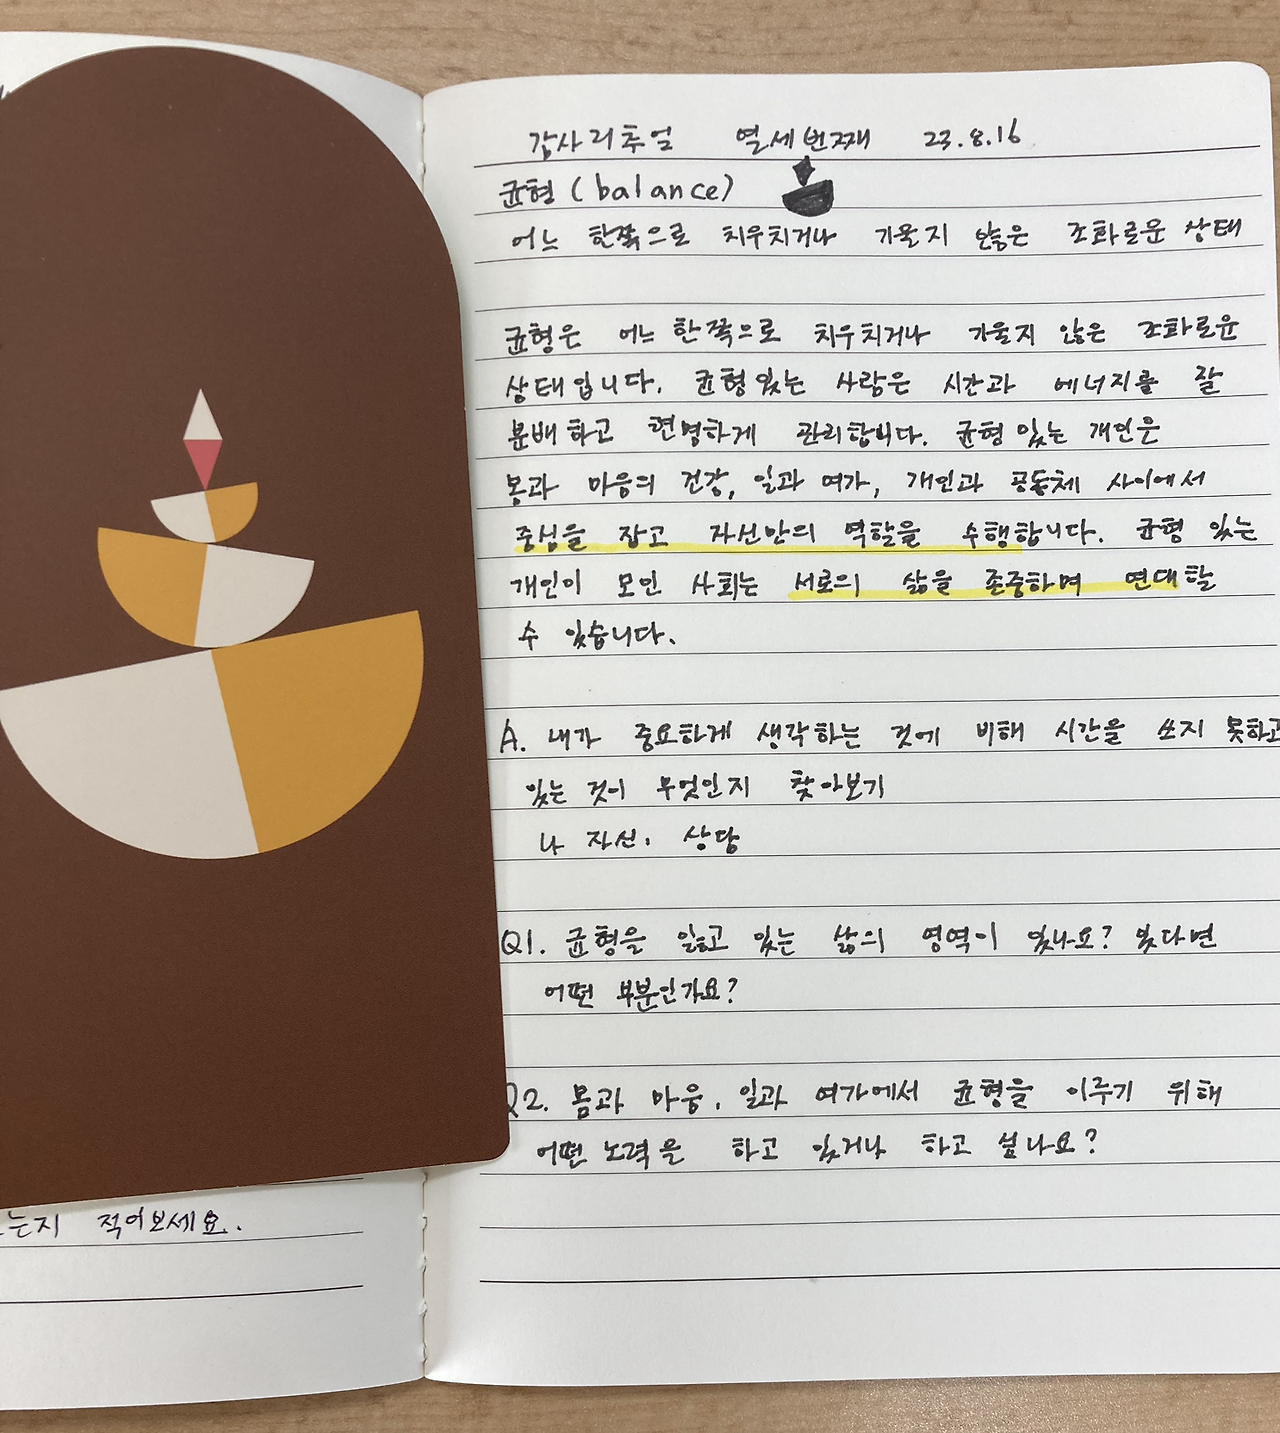 감사리추얼 열세번째 23.8.16
균형 (balance)
어느 한쪽으로 치우치거나 기울지 않은 조화로운 상태
균형은 어느 한쪽으로 치우치거나 기울지 않은 조화로운
상태입니다. 균형있는 사람은 시간과 에너지를 잘
분배하고 현명하게 관리합니다. 균형 있는 개인은
몸과 마음의 건강, 일과 여가, 개인과 공동체 사이에서
중심을 잡고 자신만의 역할을 수행합니다. 균형 있는
개인이 모인 사회는 서로의 삶을 존중하며 연대할
수 있습니다.
A. 내가 중요하게 생각하는 것에 비해 시간을 쓰지 못하고
있는 것이 무엇인지 찾아보기
나 자신. 상담
Q1. 균형을 잃고 있는 삶의 영역이 있나요? 있다면
어떤 부분인가요?
Q2. 몸과 마음, 일과 여가에서 균형을 이루기 위해
어떤 노력을 하고 있거나 하고 싶나요?
는지 적어보세요.